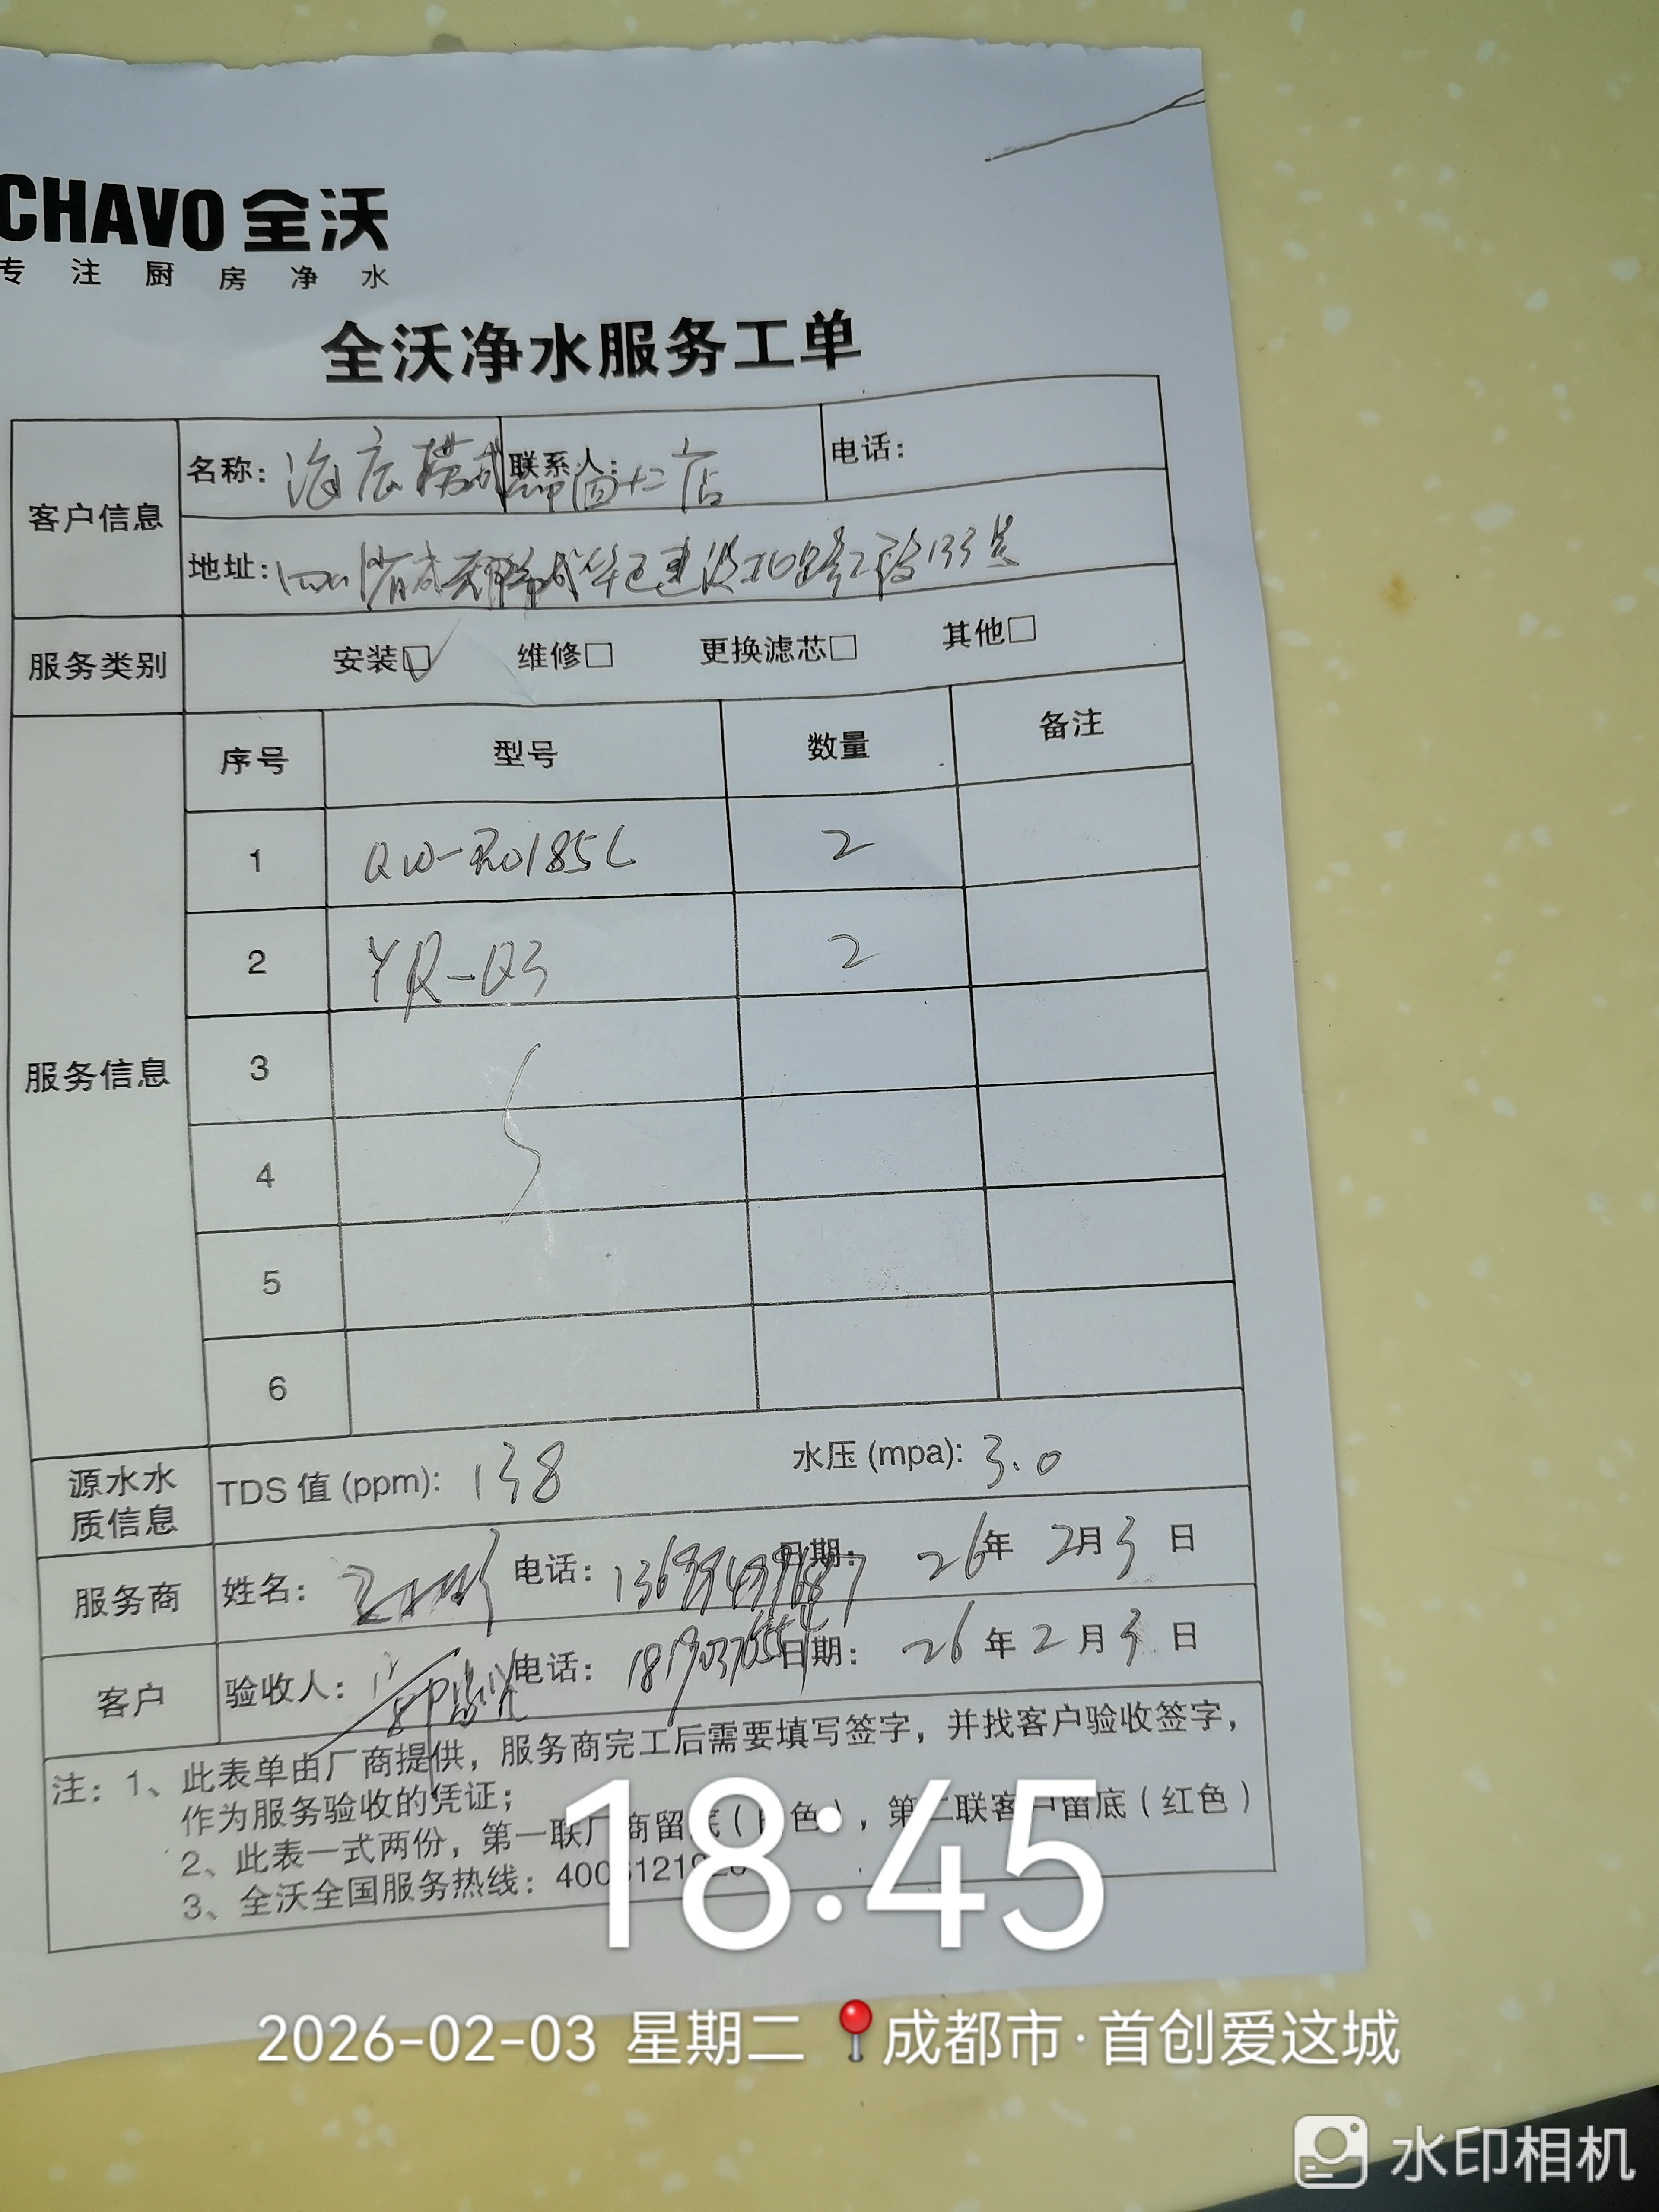 CHAVO 全沃
专注厨房净水
全沃净水服务工单
客户信息
名称: 海底捞成都 十二店 联系人: 电话:
地址: 四川省成都市成华区建设北路二段133号
服务类别 安装☑ 维修□ 更换滤芯□ 其他□
服务信息
序号 型号 数量 备注
1 QW-R0185L 2
2 YR-Q3 2
3
4
5
6
源水水质信息 TDS 值 (ppm): 138 水压 (mpa): 3.0
服务商 姓名: 电话: 日期: 26年 2月3日
客户 验收人: 电话: 日期: 26年2月3日
注: 1、此表单由厂商提供，服务商完工后需要填写签字，并找客户验收签字，
作为服务验收的凭证；
2、此表一式两份，第一联厂商留底（白色），第二联客户留底（红色）
3、全沃全国服务热线:
18:45
2026-02-03 星期二 成都市·首创爱这城
水印相机